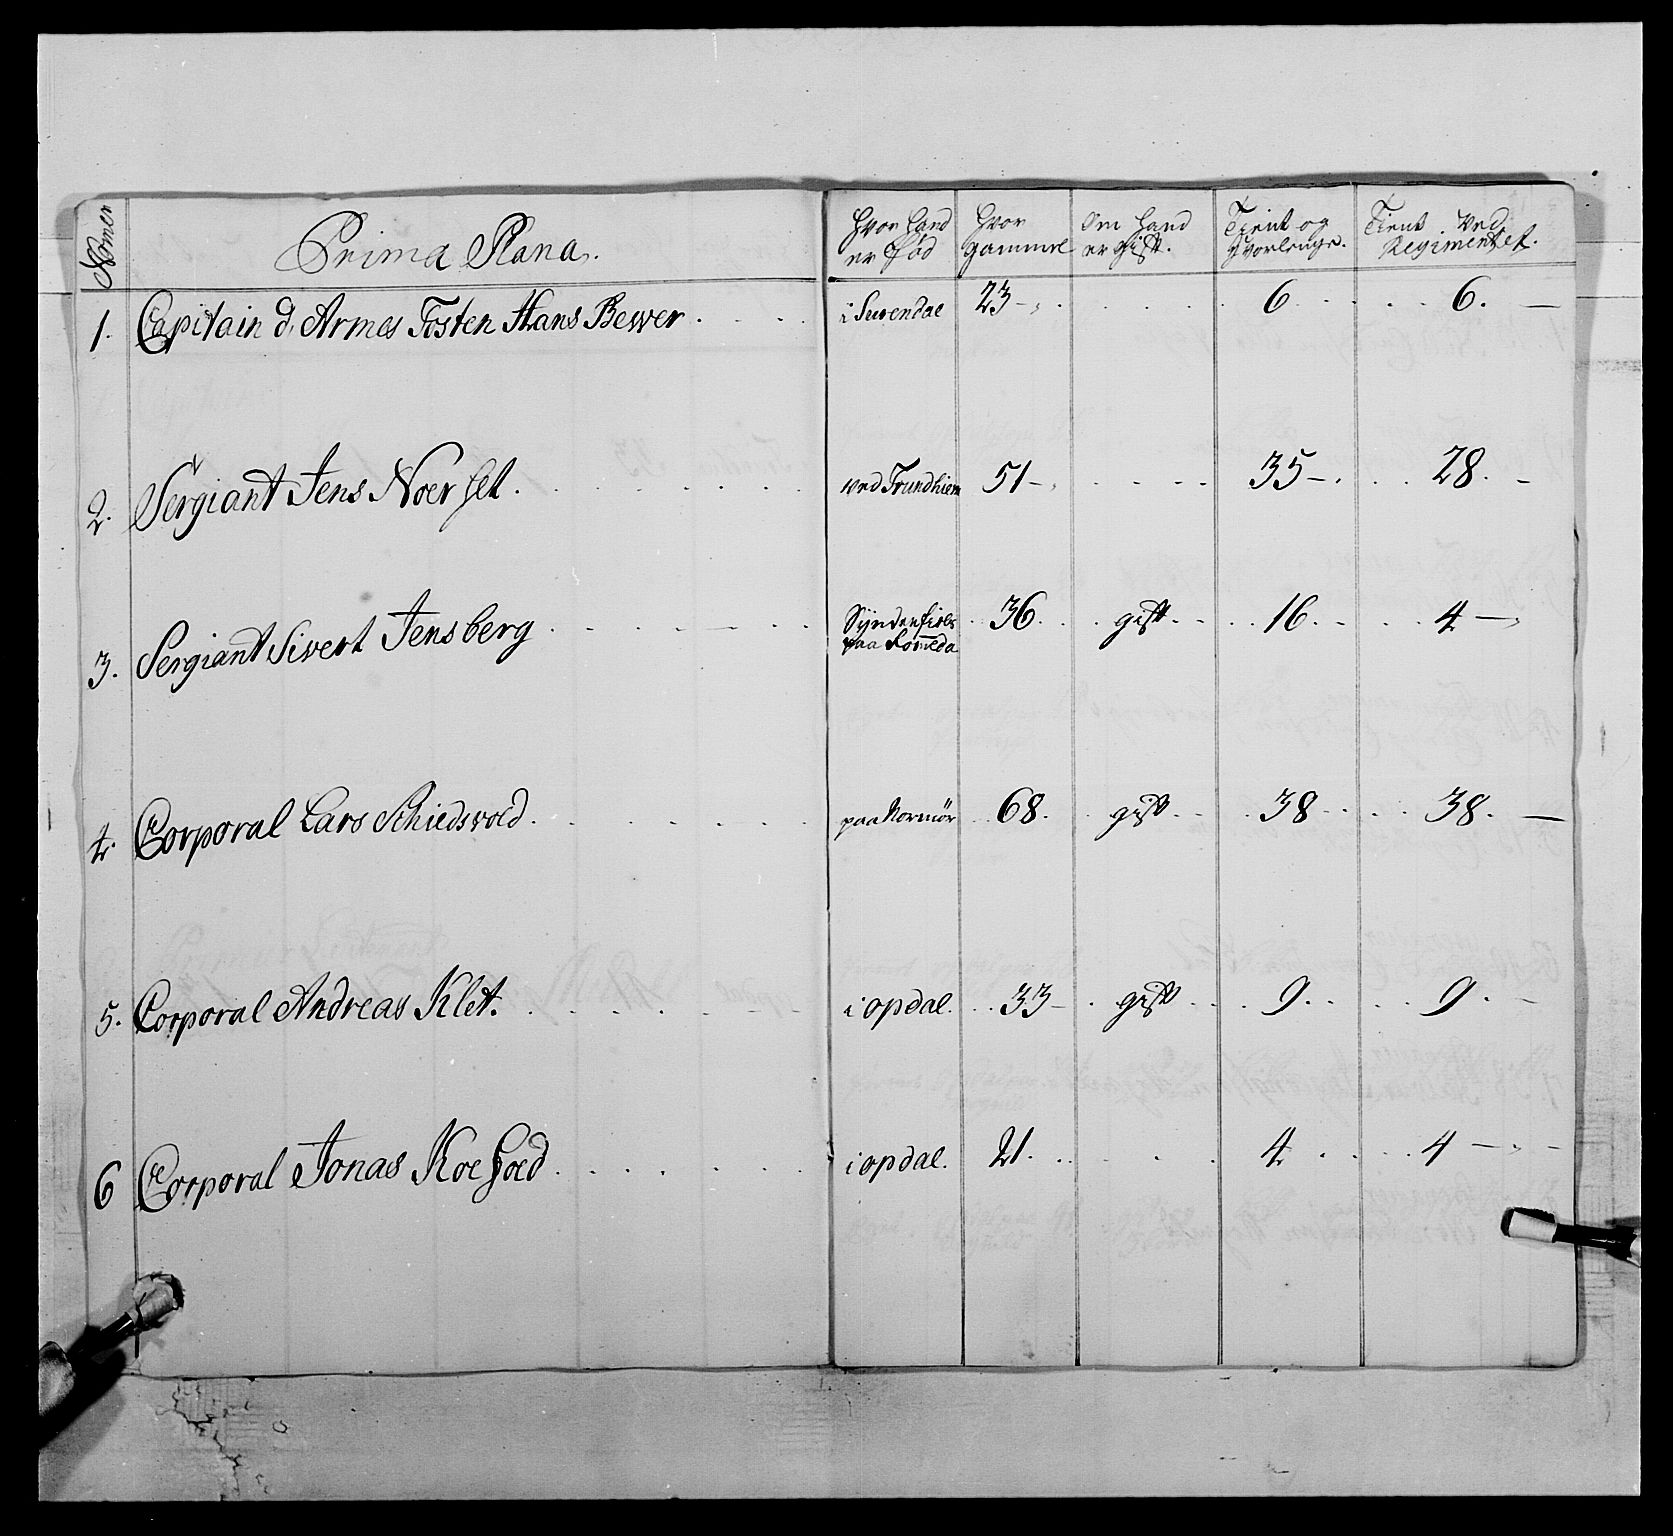 Nomer
Prima Plana.
Hvor hand er föd
Hvor gammel
Om hand er gift.
Tient og hvorlenge.
Tient ved Regimentet.
1. Capitain d. Armes Tosten Hans Bewer i Surendal 23 6 6.
2. Sergiant Jens Noer set. ved Trundhiem 51 35 28.
3. Sergiant Sivert Jensberg Syndenfiels paa Romeda 36. gift 16 4
4. Corporal Lars Schiedsvold paa Normör 68. gift 38 38.
5. Corporal Andreas Klet. i opdal. 33 gift 9. 9.
6 Corporal Jonas Koefoed i opdal. 21. 4 4